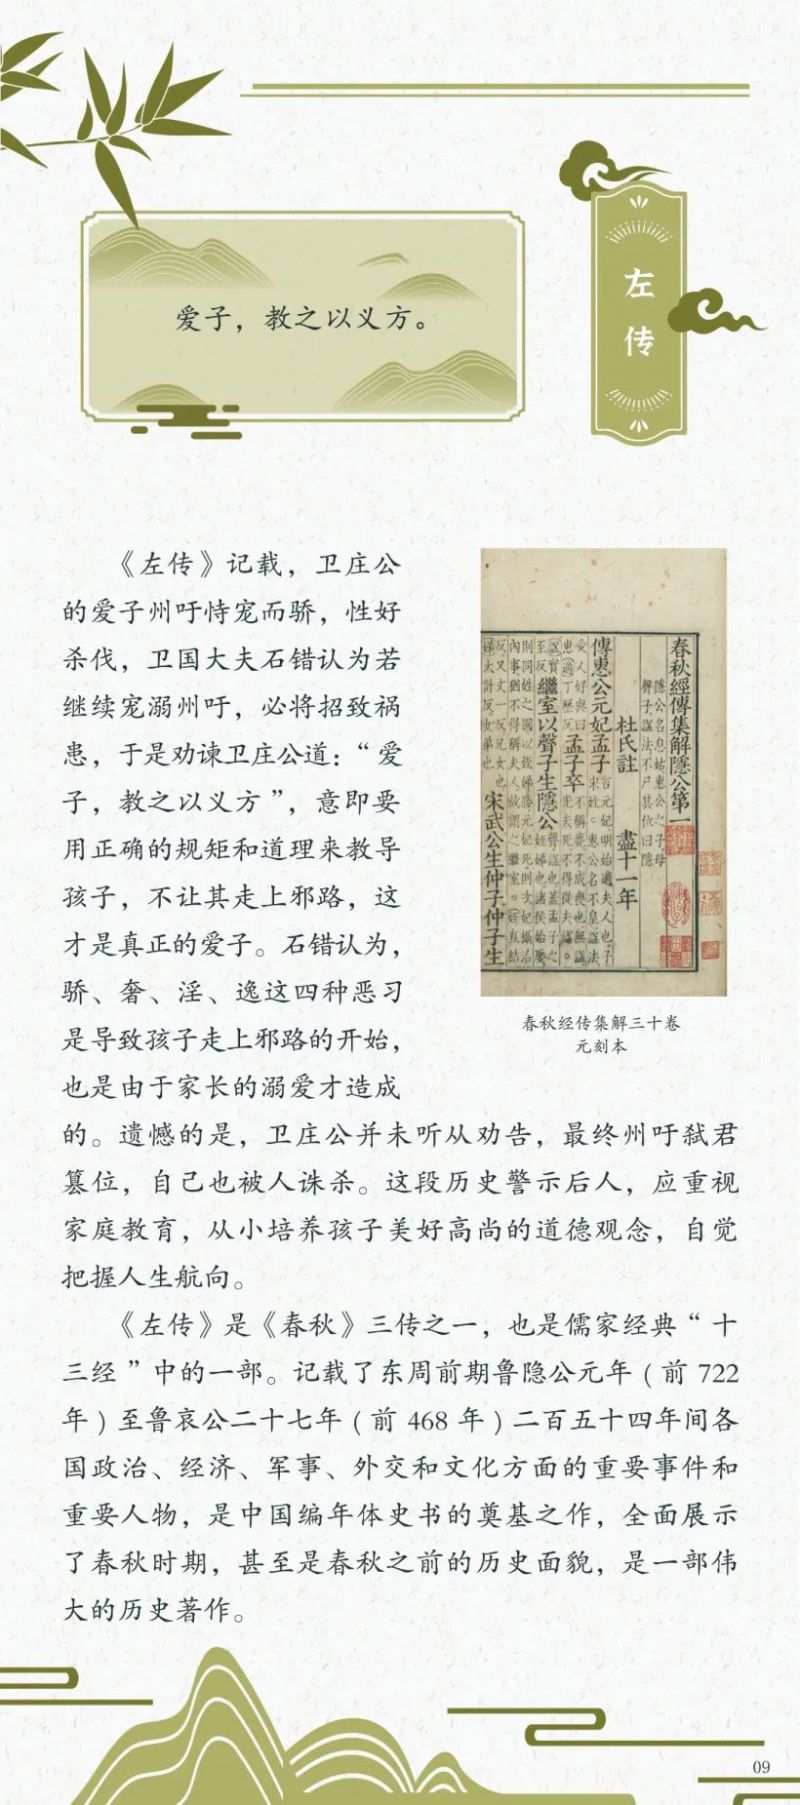 左传
爱子，教之以义方。
《左传》记载，卫庄公
的爱子州吁恃宠而骄，性好
杀伐，卫国大夫石错认为若
继续宠溺州吁，必将招致祸
患，于是劝谏卫庄公道：“爱
子，教之以义方”，意即要
用正确的规矩和道理来教导
孩子，不让其走上邪路，这
才是真正的爱子。石错认为，
骄、奢、淫、逸这四种恶习
是导致孩子走上邪路的开始，
也是由于家长的溺爱才造成
的。遗憾的是，卫庄公并未听从劝告，最终州吁弑君
篡位，自己也被人诛杀。这段历史警示后人，应重视
家庭教育，从小培养孩子美好高尚的道德观念，自觉
把握人生航向。
春秋經傳集解隱公第一
杜氏註
盡十一年
傳惠公元妃孟子
孟子卒
繼室以聲子生隱公
宋武公生仲子仲子生
春秋经传集解三十卷
元刻本
《左传》是《春秋》三传之一，也是儒家经典“十
三经”中的一部。记载了东周前期鲁隐公元年（前 722
年）至鲁哀公二十七年（前 468 年）二百五十四年间各
国政治、经济、军事、外交和文化方面的重要事件和
重要人物，是中国编年体史书的奠基之作，全面展示
了春秋时期，甚至是春秋之前的历史面貌，是一部伟
大的历史著作。
09